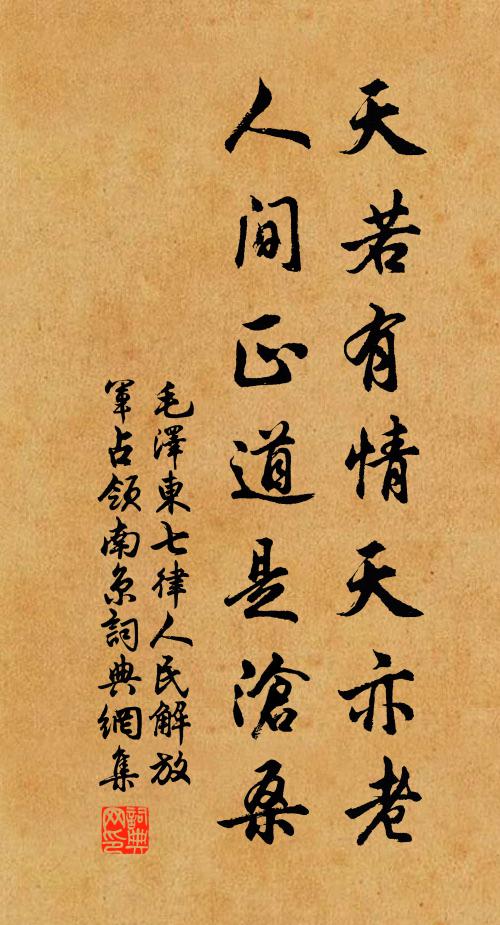 天若有情天亦老
人间正道是滄桑
毛澤東七律人民解放
軍占领南京詞典網集
詞典网印